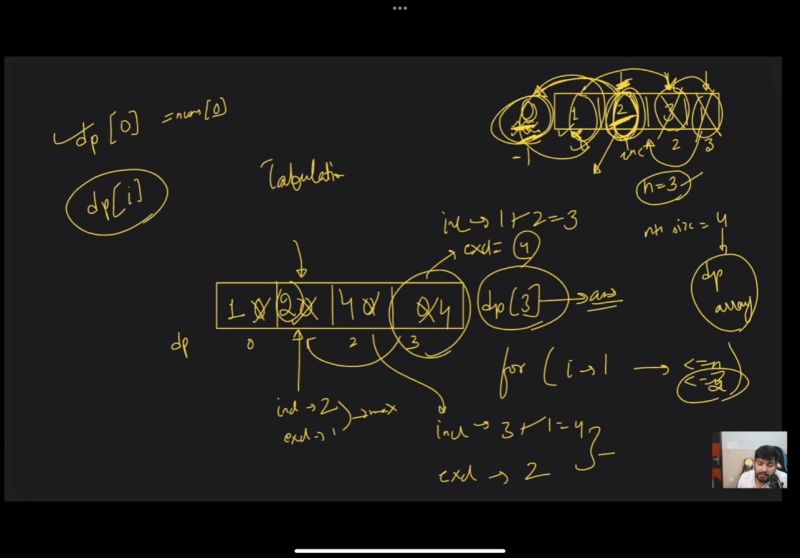 dp[0] = nums[0]
dp[i]
Tabulation
0 1 2 3 1
-1 inc 2 3
n=3
nts size = 4
dp
array
incl → 1+2=3
excl = 4
1 0 2 0 4 0 0 4
dp[3] → ans
dp 0 2 3
for (i→1 → <=n
<=3
incl → 2
excl → 1
→ max
incl → 3+1=4
excl → 2